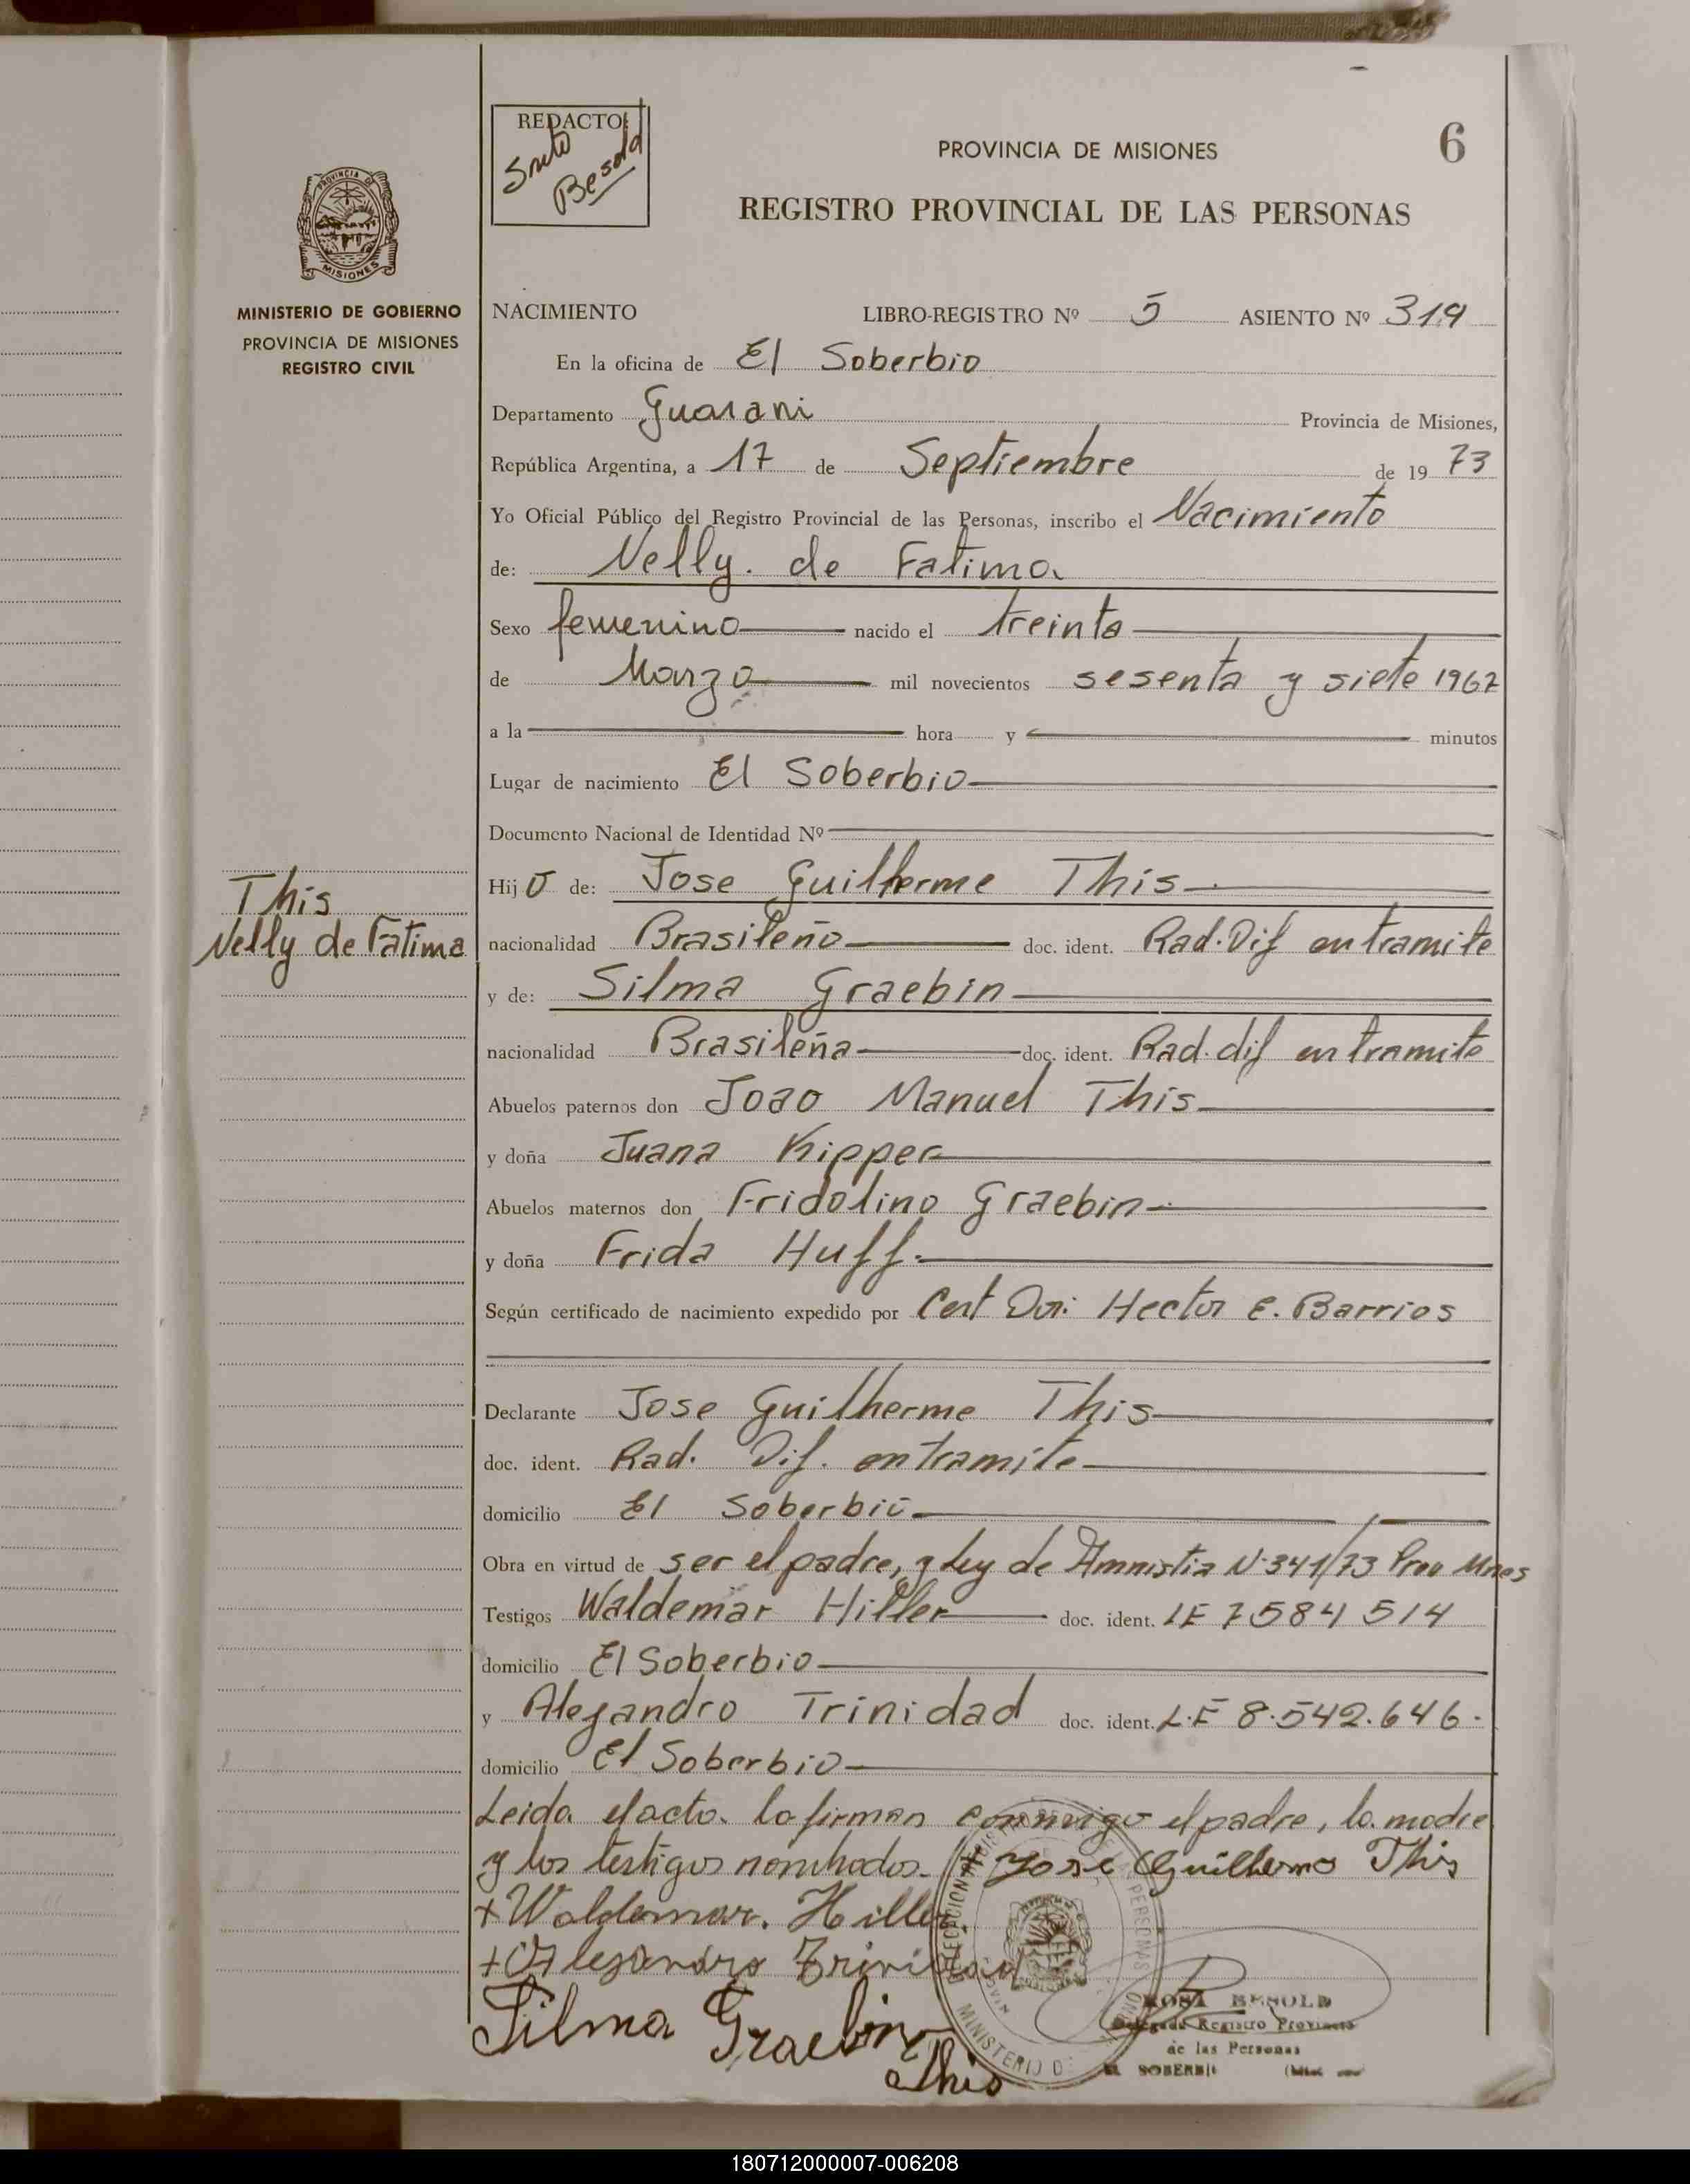 REDACTO:
Srito
Besold
PROVINCIA DE MISIONES
6
REGISTRO PROVINCIAL DE LAS PERSONAS
PROVINCIA DE
MISIONES
MINISTERIO DE GOBIERNO
PROVINCIA DE MISIONES
REGISTRO CIVIL
NACIMIENTO LIBRO-REGISTRO Nº 5 ASIENTO Nº 319
En la oficina de El Soberbio
Departamento Guarani Provincia de Misiones,
República Argentina, a 17 de Septiembre de 19 73
Yo Oficial Público del Registro Provincial de las Personas, inscribo el Nacimiento
de: Nelly. de Fatima
Sexo femenino nacido el treinta
de Marzo mil novecientos sesenta y siete 1967
a la hora y minutos
Lugar de nacimiento El Soberbio
Documento Nacional de Identidad Nº
This
Nelly de Fatima
Hij O de: Jose Guilherme This
nacionalidad Brasileño doc. ident. Rad. Dif en tramite
y de: Silma Graebin
nacionalidad Brasileña doc. ident. Rad. dif en tramite
Abuelos paternos don Joao Manuel This
y doña Juana Kipper
Abuelos maternos don Fridolino Graebin
y doña Frida Huff.
Según certificado de nacimiento expedido por Cert Hector E. Barrios
Declarante Jose Guilherme This
doc. ident. Rad. Dif. en tramite
domicilio El Soberbio
Obra en virtud de ser el padre, y Ley de Amnistia N·341/73 Prov Mnes
Testigos Waldemar Hiller doc. ident. LE 7584514
domicilio El Soberbio
y Alejandro Trinidad doc. ident. L.E 8.542.646.
domicilio El Soberbio
Leida el acto. la firman conmigo el padre, la madre
y los testigos nombrados. + Jose Guilherme This
+ Waldemar. Hiller
+ Alejandro Trinidad
Silma Graebin
This
ROSA BESOLD
Delegada Registro Provincial
de las Personas
EL SOBERBIO
MINISTERIO D
180712000007-006208